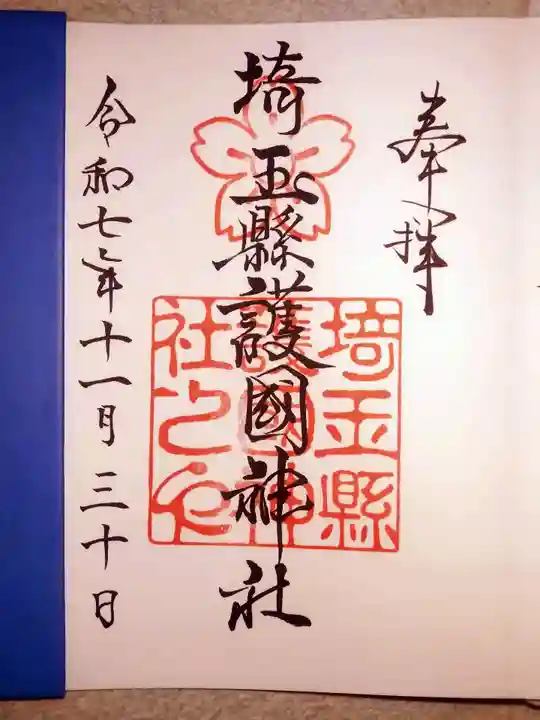 奉拝
埼玉縣護國神社
埼玉縣
護國神
社之印
令和七年十一月三十日